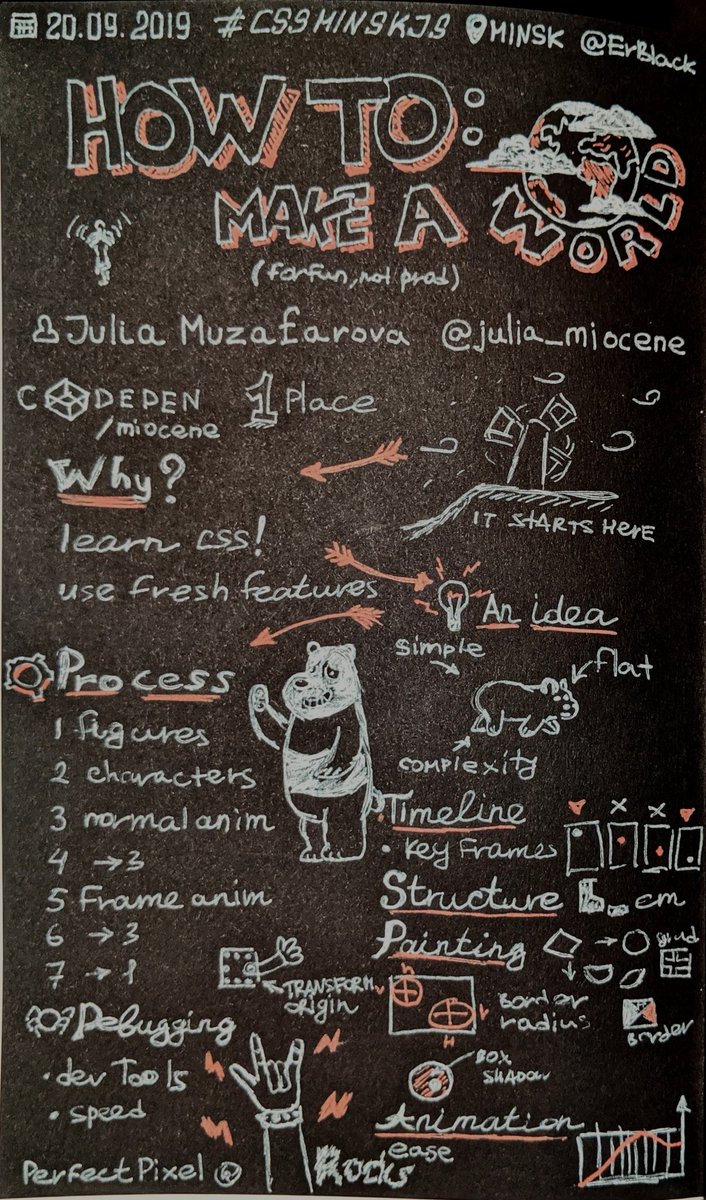 20.09.2019 #CSSMINSKJS MINSK @ErBlack
HOW TO:
MAKE A WORLD
(for fun, not prod)
Julia Muzafarova @julia_miocene
CODEPEN
/miocene
1 Place
Why?
IT STARTS HERE
learn css!
use fresh features
An idea
simple
flat
complexity
Process
1 figures
2 characters
3 normal anim
4 →3
5 Frame anim
6 →3
7 →1
Timeline
• Key Frames
Structure
em
Painting
grid
TRANSFORM
origin
Border
radius
Border
BOX
SHADOW
Debugging
• dev Tools
• speed
Animation
ease
PerfectPixel
Rocks